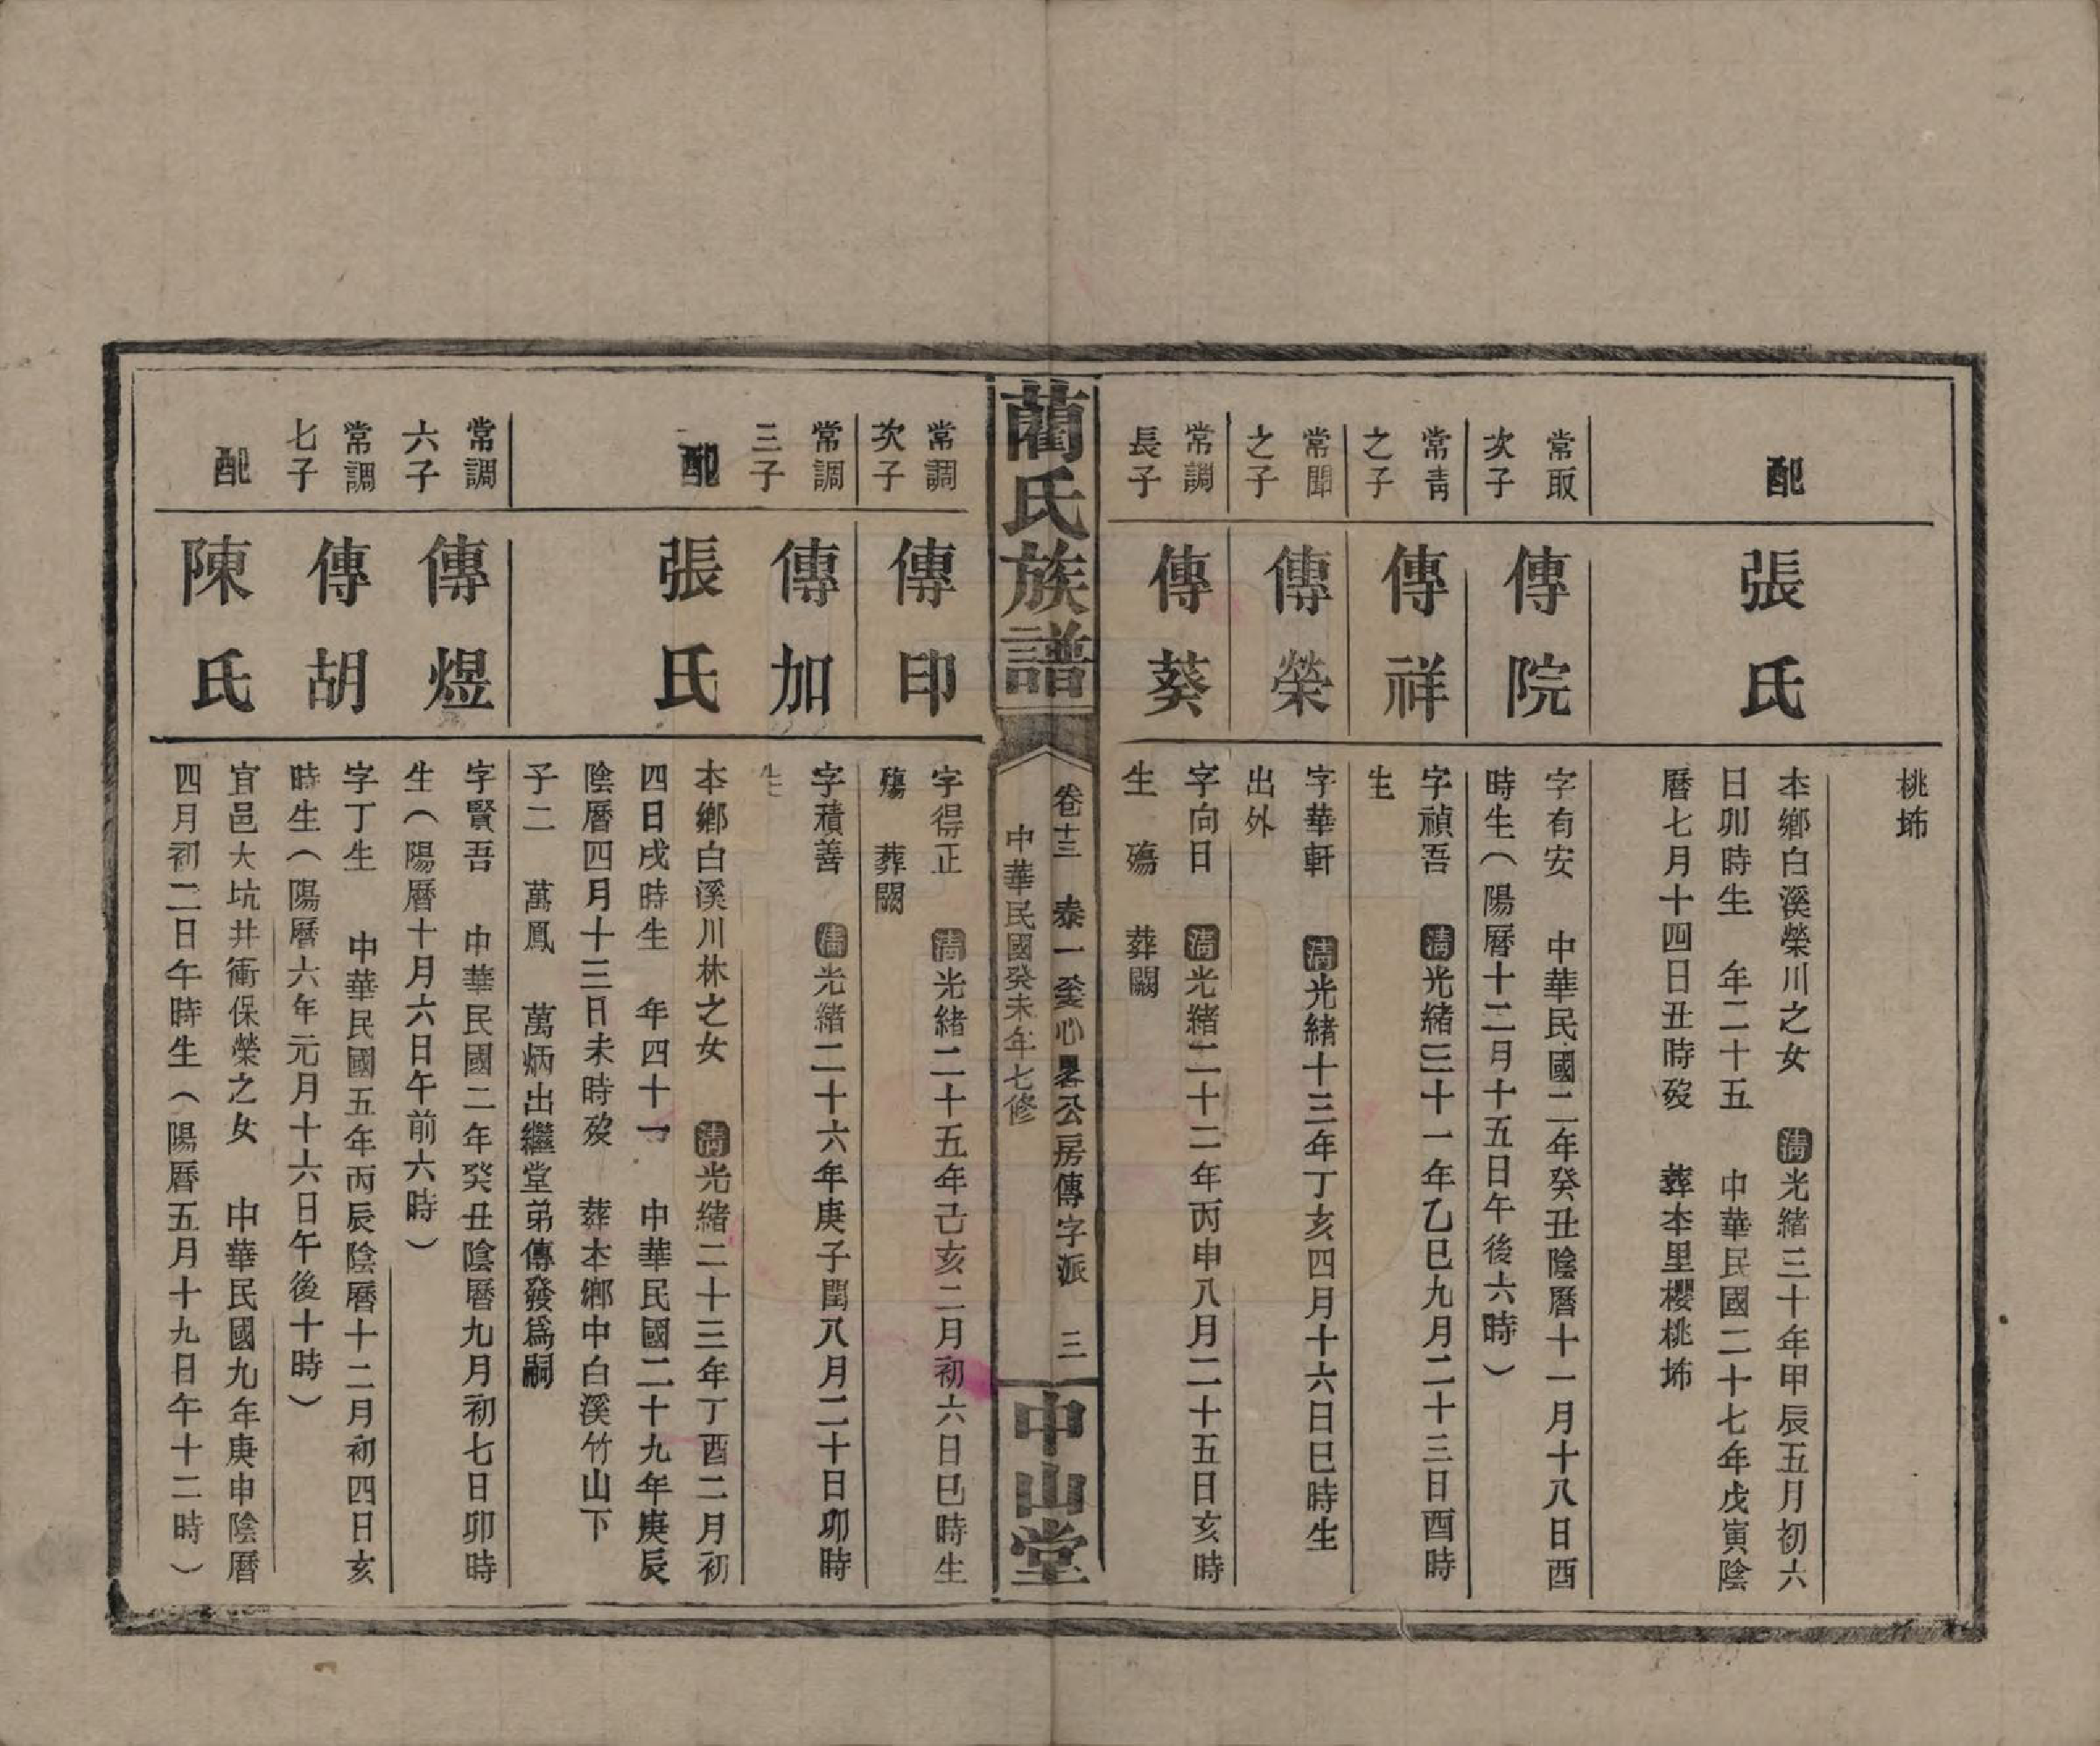 桃坲
配
張氏
本鄉白溪榮川之女　清光緒三十年甲辰五月初六
日卯時生　年二十五　中華民國二十七年戊寅陰
曆七月十四日丑時歿　葬本里櫻桃坲
常取
次子
傳院
字有安　中華民國二年癸丑陰曆十一月十八日酉
時生（陽曆十二月十五日午後六時）
常靑
之子
傳祥
字禎吾　清光緒三十一年乙巳九月二十三日酉時
生
常聞
之子
傳榮
字華軒　清光緒十三年丁亥四月十六日巳時生
出外
常調
長子
傳葵
字向日　清光緒二十二年丙申八月二十五日亥時
生　殤　葬闕
藺氏族譜
卷十三　泰一　心畧公房傳字派　三
中華民國癸未年七修
中山堂
常調
次子
傳印
字得正　清光緒二十五年己亥二月初六日巳時生
殤　葬闕
常調
三子
傳加
字積善　清光緒二十六年庚子閏八月二十日卯時
生
配
張氏
本鄉白溪川林之女　清光緒二十三年丁酉二月初
四日戌時生　年四十一　中華民國二十九年庚辰
陰曆四月十三日未時歿　葬本鄉中白溪竹山下
子二　萬鳳　萬炳出繼堂弟傳發爲嗣
常調
六子
傳煜
字賢吾　中華民國二年癸丑陰曆九月初七日卯時
生（陽曆十月六日午前六時）
常調
七子
傳胡
字丁生　中華民國五年丙辰陰曆十二月初四日亥
時生（陽曆六年元月十六日午後十時）
配
陳氏
宜邑大坑井衝保榮之女　中華民國九年庚申陰曆
四月初二日午時生（陽曆五月十九日午十二時）